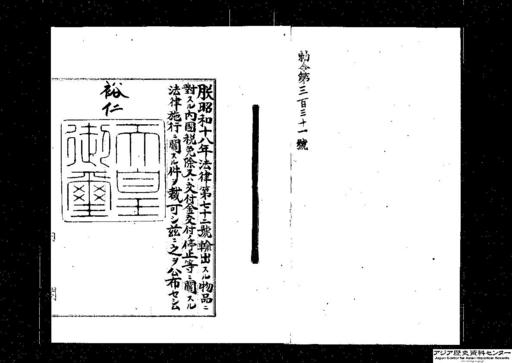 勅令第三百三十一號
朕昭和十八年法律第七十二號輸出スル物品ニ
對スル内國税免除又ハ交付金交付ノ停止等ニ關スル
法律施行ニ關スル件ヲ裁可シ茲ニ之ヲ公布セシム
裕仁
天皇
御璽
内
閣
アジア歴史資料センター
Japan Center for Asian Historical Records